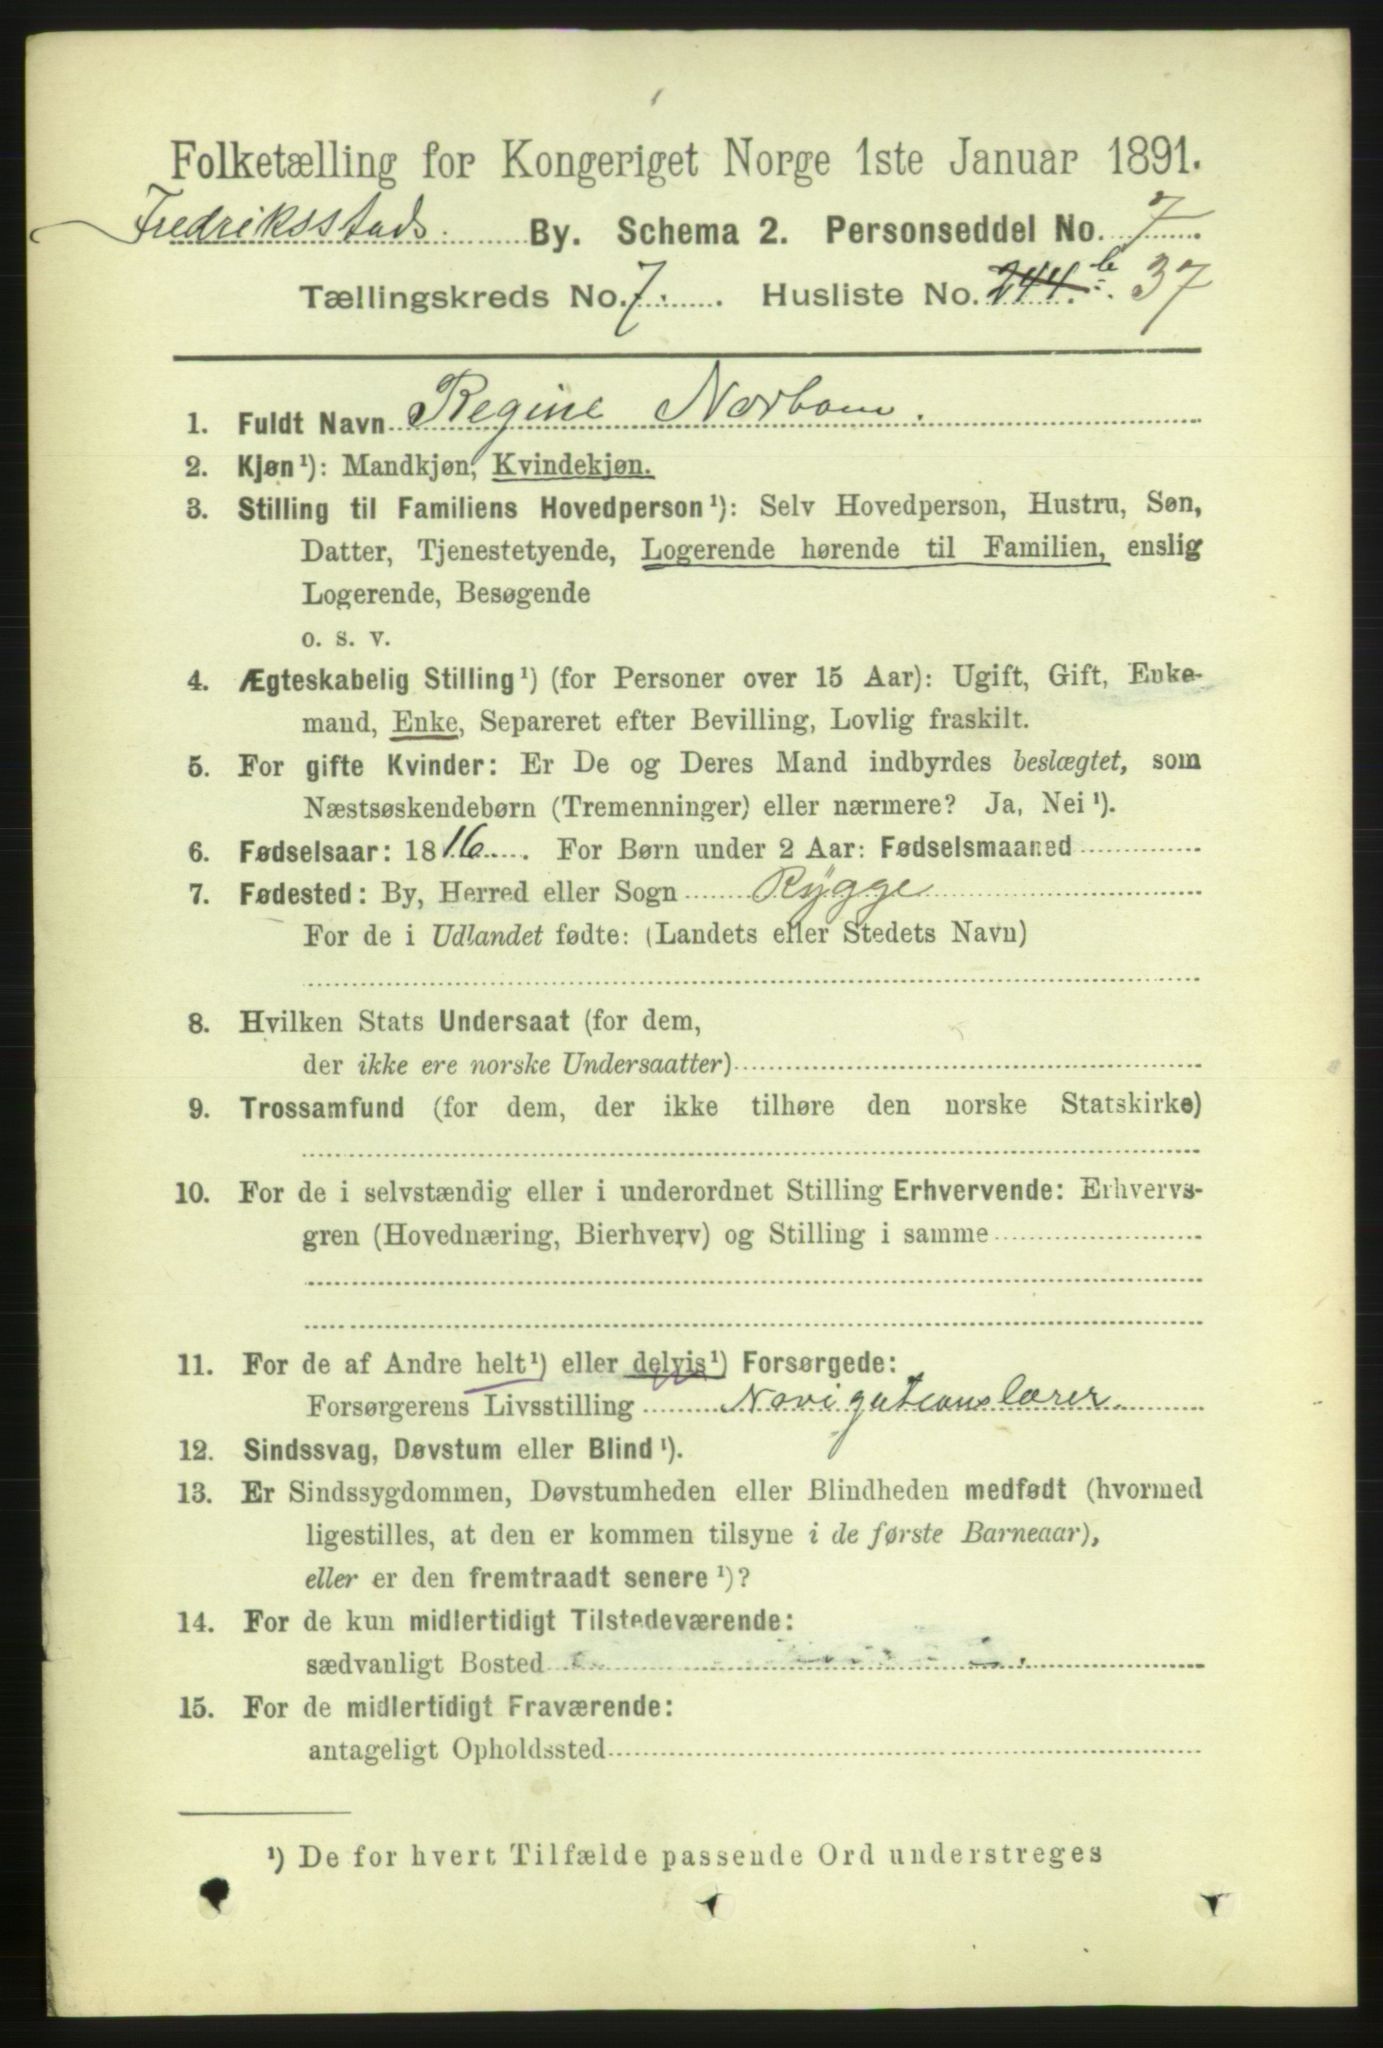 Folketælling for Kongeriget Norge 1ste Januar 1891.
Fredriksstads By. Schema 2. Personseddel No. 7
Tællingskreds No. 7. Husliste No. 244.b 37
1. Fuldt Navn Regine Norbom.
2. Kjøn¹): Mandkjøn, Kvindekjøn.
3. Stilling til Familiens Hovedperson¹): Selv Hovedperson, Hustru, Søn,
Datter, Tjenestetyende, Logerende hørende til Familien, enslig
Logerende, Besøgende
o. s. v.
4. Ægteskabelig Stilling¹) (for Personer over 15 Aar): Ugift, Gift, Enke-
mand, Enke, Separeret efter Bevilling, Lovlig fraskilt.
5. For gifte Kvinder: Er De og Deres Mand indbyrdes beslægtet, som
Næstsøskendebørn (Tremenninger) eller nærmere? Ja, Nei¹).
6. Fødselsaar: 1816. For Børn under 2 Aar: Fødselsmaaned
7. Fødested: By, Herred eller Sogn Rygge
For de i Udlandet fødte: (Landets eller Stedets Navn)
8. Hvilken Stats Undersaat (for dem,
der ikke ere norske Undersaatter)
9. Trossamfund (for dem, der ikke tilhøre den norske Statskirke)
10. For de i selvstændig eller i underordnet Stilling Erhvervende: Erhvervs-
gren (Hovednæring, Bierhverv) og Stilling i samme
11. For de af Andre helt¹) eller delvis¹) Forsørgede:
Forsørgerens Livsstilling Navigationslærer.
12. Sindssvag, Døvstum eller Blind¹).
13. Er Sindssygdommen, Døvstumheden eller Blindheden medfødt (hvormed
ligestilles, at den er kommen tilsyne i de første Barneaar),
eller er den fremtraadt senere¹)?
14. For de kun midlertidigt Tilstedeværende:
sædvanligt Bosted
15. For de midlertidigt Fraværende:
antageligt Opholdssted
¹) De for hvert Tilfælde passende Ord understreges